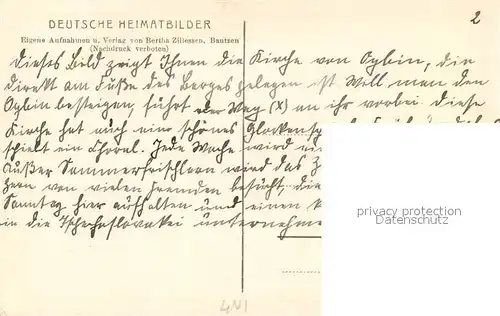 DEUTSCHE HEIMATBILDER
2
Eigene Aufnahmen u. Verlag von Bertha Zillessen, Bautzen
(Nachdruck verboten)
Dieses Bild zeigt Ihnen die Kirche von Oybin, die
direkt am Fuße des Berges gelegen ist. Will man den
Oybin besteigen, führt der Weg (X) an ihr vorbei. Diese
Kirche hat auch eine schönes Glockensp
spielt ein Choral. Jede Woche wird
Außer Sommerfrischlern wird das Z
von vielen Fremden besucht, die
Sonntag hier aufhalten und einen
in die Tschechoslovakei unternehme
privacy protection
Datenschutz